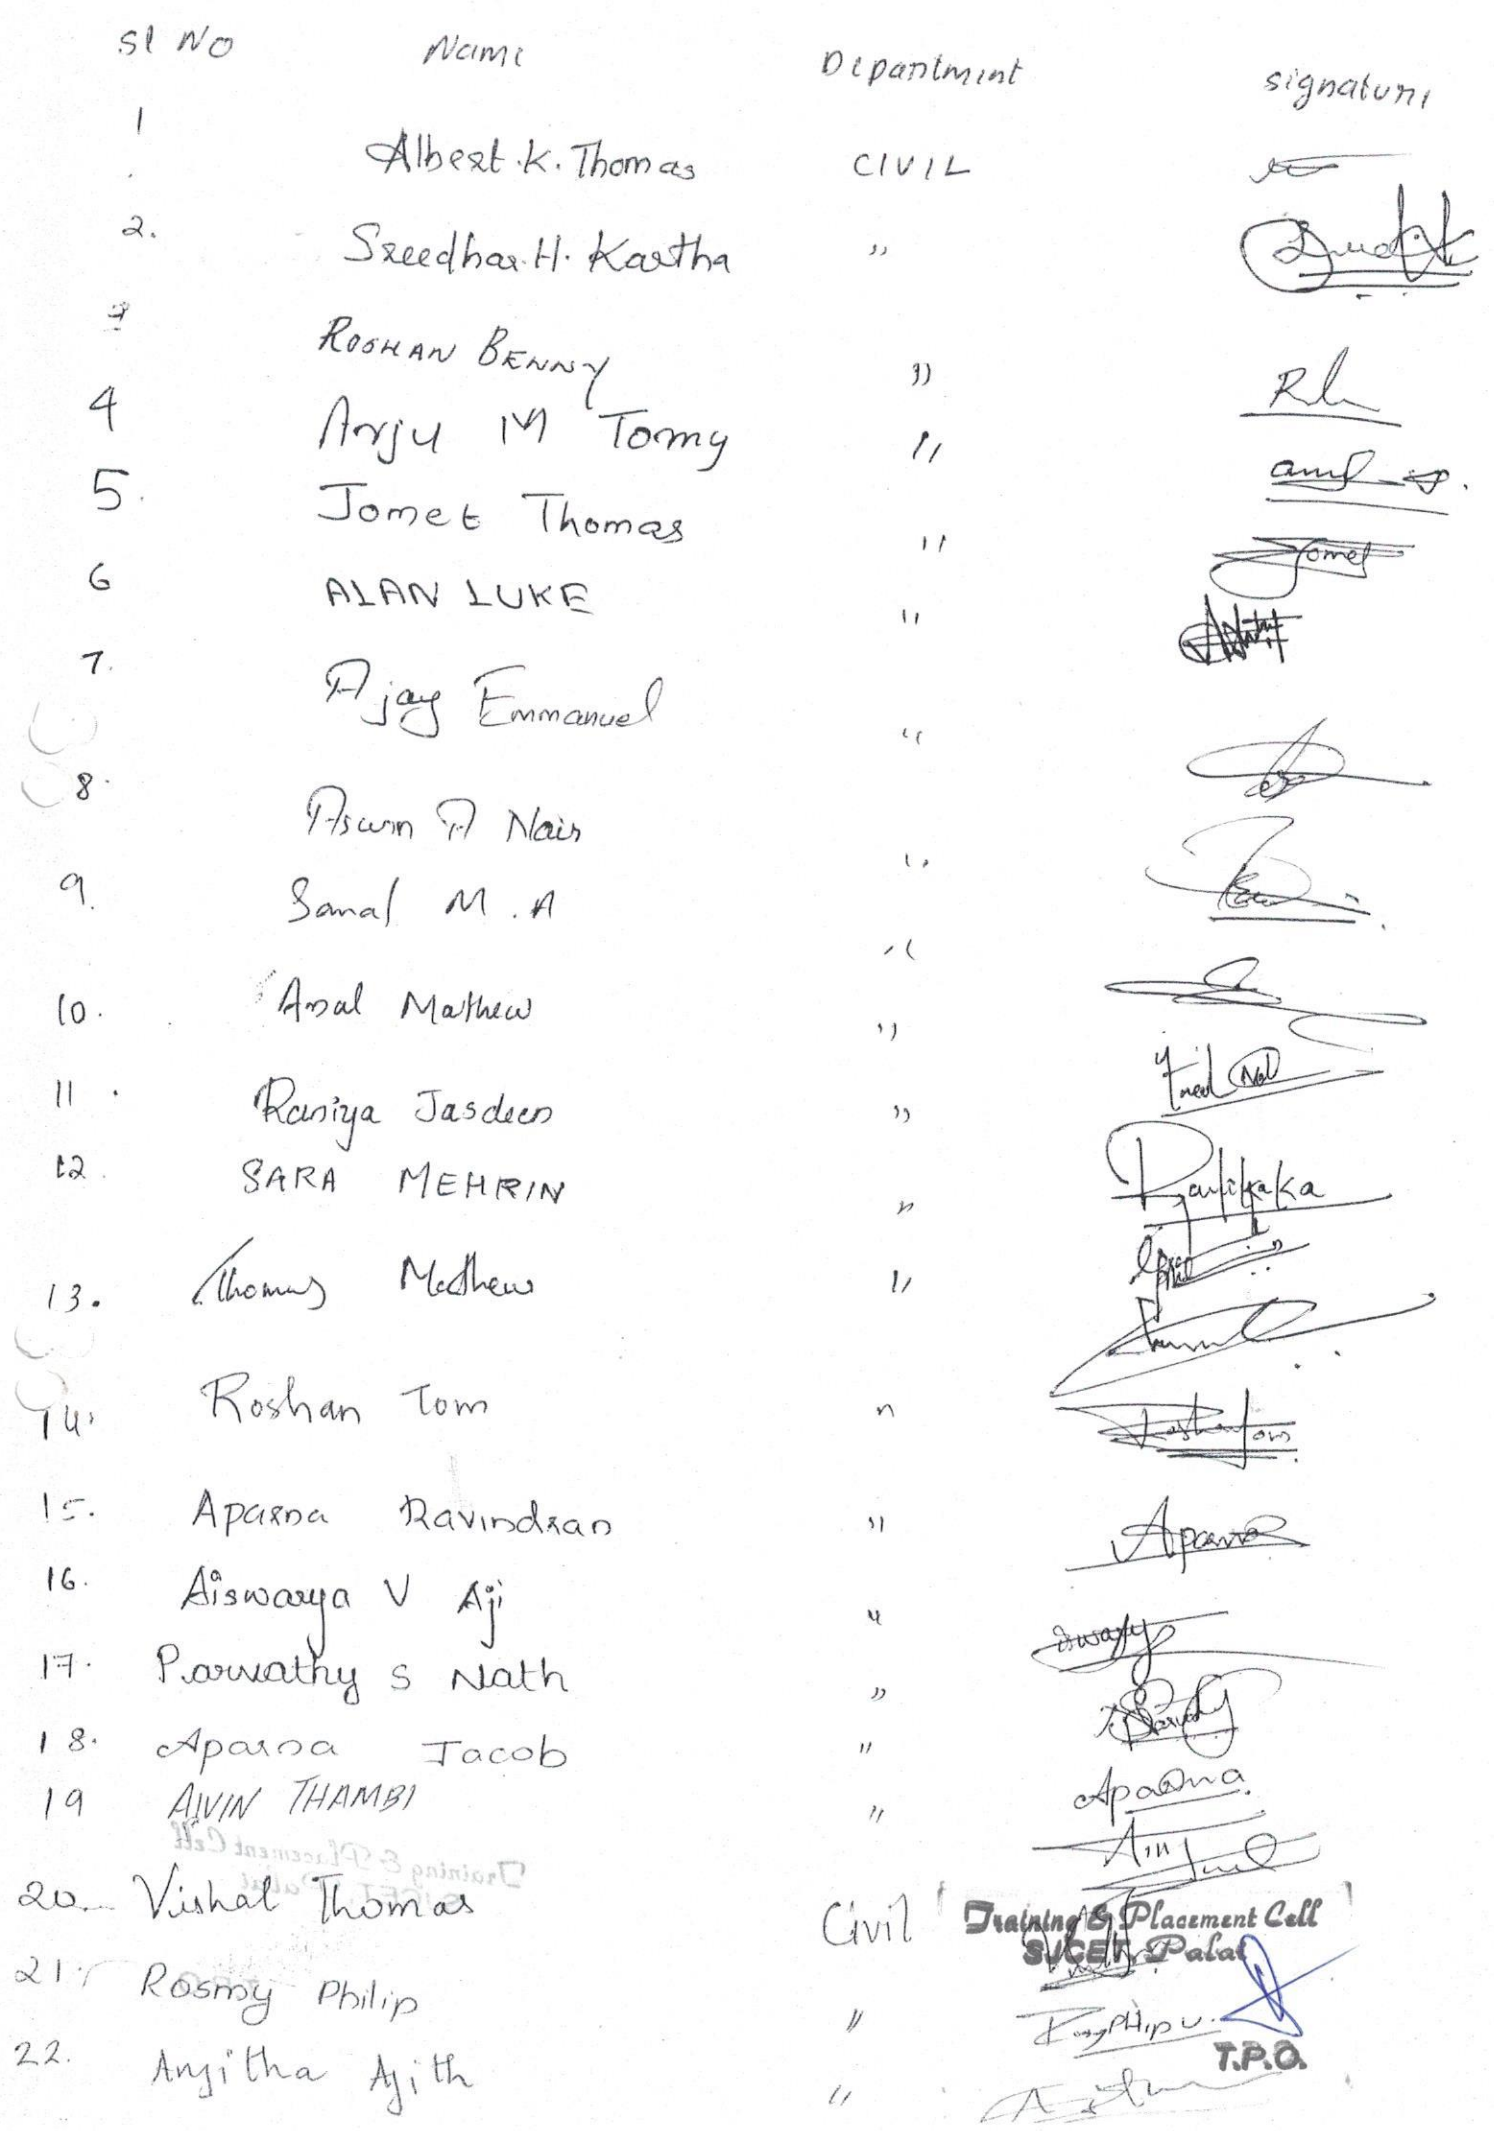 Sl NO Name Department Signature
1 Albert.K.Thomas CIVIL
2. Sreedhar.H.Kartha "
3 ROSHAN BENNY "
4 Anju M Tomy "
5. Jomet Thomas " Jomet
6 ALAN LUKE "
7. Ajay Emmanuel "
8. Aswin A Nair "
9. Sanal M.A "
10. Amal Mathew "
11. Raniya Jasdeen "
12. SARA MEHRIN "
13. Thomas Mathew "
14. Roshan Tom " Roshan Tom
15. Aparna Ravindran " Aparna
16. Aiswarya V Aji "
17. Parvathy S Nath "
18. Aparna Jacob " Aparna
19 ALVIN THAMBI "
20. Vishal Thomas Civil
Training & Placement Cell
SJCET, Palai
21. Rosmy Philip "
T.P.O.
22. Anjitha Ajith "